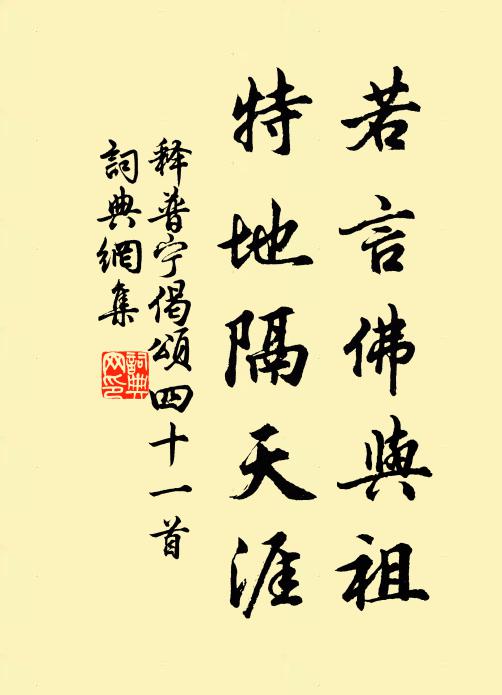 若言佛與祖
特地隔天涯
释普宁偈頌四十一首
詞典網集
詞典网印